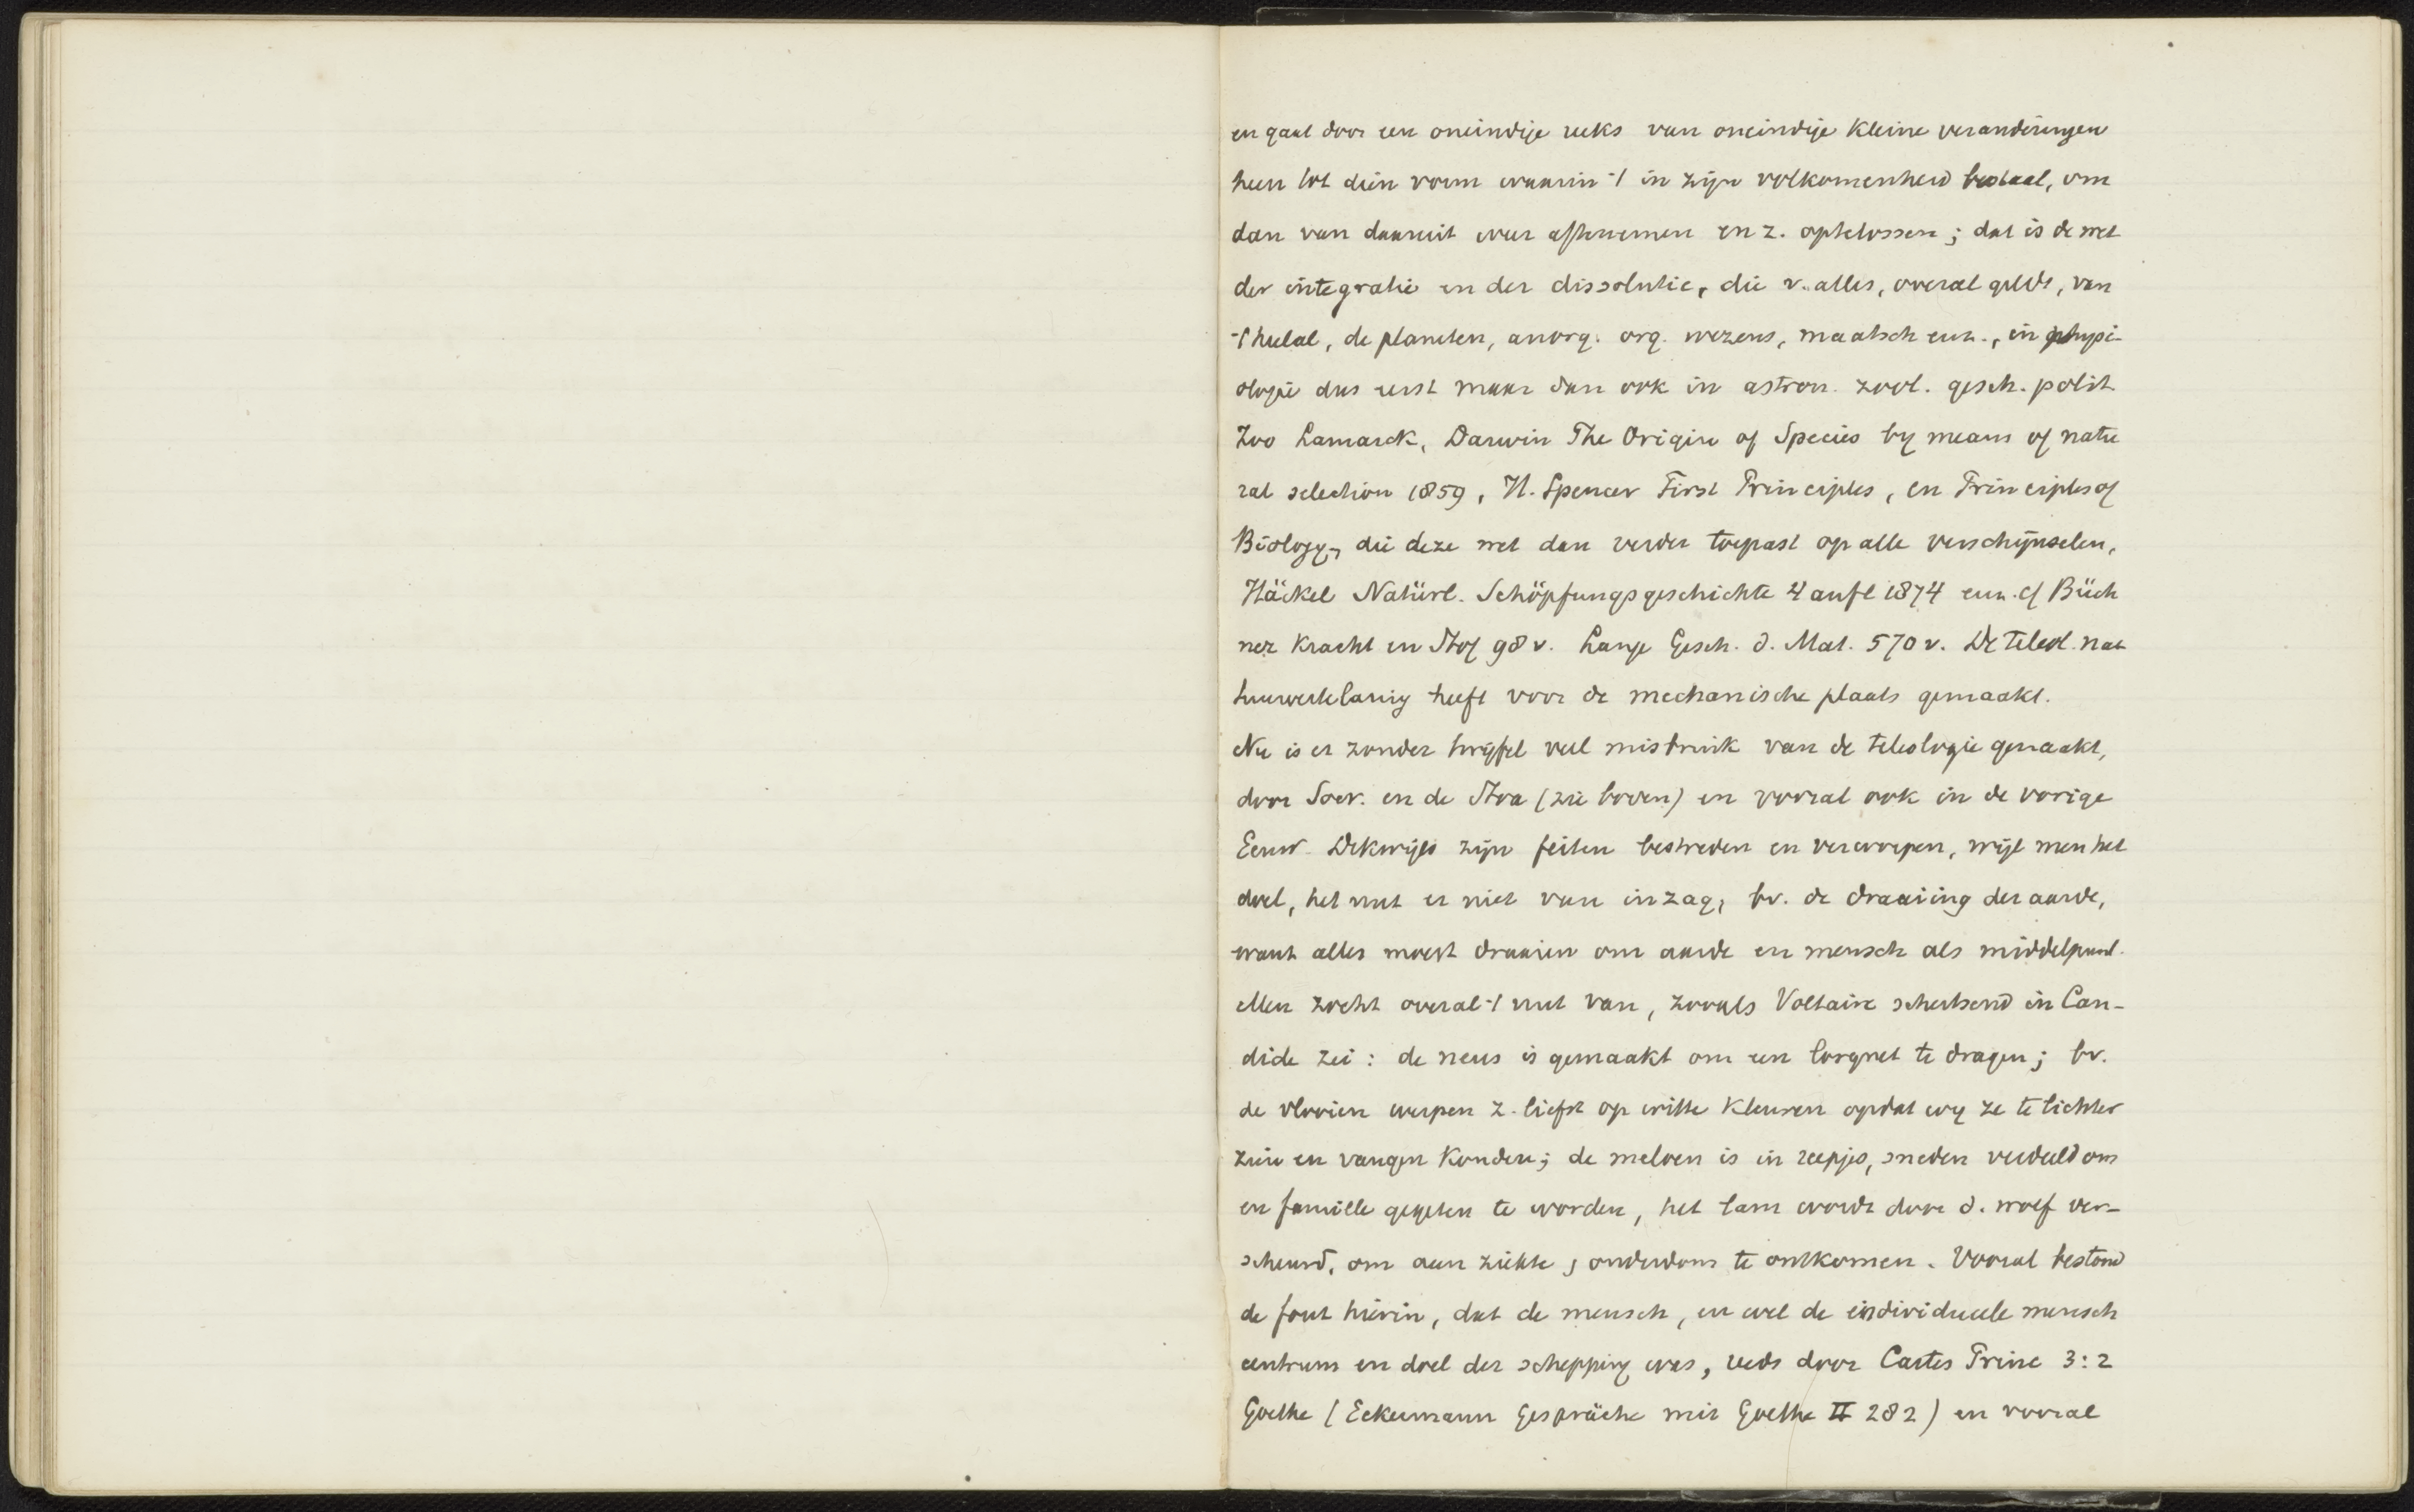 en gaat door een oneindige reeks van oneindige kleine veranderingen
heen tot dien vorm waarin 't in zijn volkomenheid bestaat, om
dan van daaruit weer afte nemen en z. opte lossen; dat is de wet
der integratie en der dissolutie, die v. alles, overal geldt, van
't heelal, de planeten, anorg. org. wezens, maatsch enz., in physi-
ologie dus eerst maar dan ook in astron. zool. gesch. polit.
Zoo Lamarck, Darwin The Origin of Species by means of natu
ral selection 1859, H. Spencer First Principles, en Principles of
Biology, die deze wet dan verder toepast op alle verschijnselen,
Häckel Natürl. Schöpfungsgeschichte 4 aufl 1874 enz. cf Büch
ner Kracht en Stof 98 v. Lange Gesch. d. Mat. 570 v. De teleol. na
tuurverklaring heeft voor de mechanische plaats gemaakt.
Nu is er zonder twijfel veel misbruik van de teleologie gemaakt,
door Socr. en de Stoa (zie boven) en vooral ook in de vorige
Eeuw. Dikwijls zijn feiten bestreden en verworpen, wijl men het
doel, het nut er niet van inzag, bv. de draaiing der aarde,
want alles moest draaien om aarde en mensch als middelpunt.
Men zocht overal 't nut van, zooals Voltaire schertsend in Can-
dide zei: de neus is gemaakt om een lorgnet te dragen; bv.
de vlooien werpen z. liefst op witte kleuren opdat wij ze te lichter
zien en vangen konden; de meloen is in reepjes, sneden verdeeld om
en famille gegeten te worden, het lam wordt door d. wolf ver-
scheurd, om aan ziekte, ouderdom te ontkomen. Vooral bestond
de fout hierin, dat de mensch, en wel de individueele mensch
centrum en doel der schepping was, reeds door Cartes Princ 3:2
Goethe (Eckermann Gespräche mit Goethe II 282) en vooral